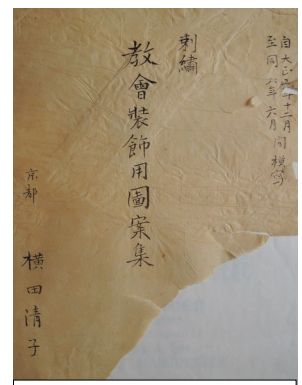 自大正六年十二月
至同八年六月 間模写
刺繍
教會裝飾用圖案集
京都
横田清子